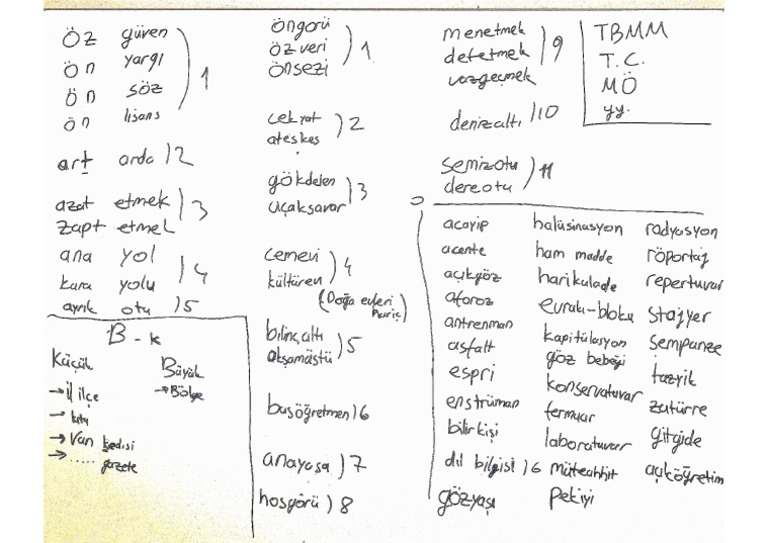 öz güven
ön yargı
ön söz
ön lisans
) 1
art arda ) 2
azat etmek
zapt etmek
) 3
ana yol
kara yolu
) 4
ayrık otu ) 5
B - k
Küçük
→ İl ilçe
→ kıta
→ Van kedisi
→ ..... gazete
Büyük
→ Bölge
öngörü
özveri
önsezi
) 1
çekyat
ateşkes
) 2
gökdelen
uçaksavar
) 3
cemevi
kültüren
) 4
(Doğa evleri hariç)
bilinçaltı
akşamüstü
) 5
başöğretmen ) 6
anayasa ) 7
hoşgörü ) 8
menetmek
defetmek
vazgeçmek
) 9
denizaltı ) 10
semizotu
dereotu
) 11
TBMM
T.C.
MÖ
yy.
acayip
acente
açıkgöz
aforoz
antrenman
asfalt
espri
enstrüman
bilirkişi
dil bilgisi ) 6
gözyaşı
halüsinasyon
ham madde
harikulade
evraki-bloku
kapitülasyon
göz bebeği
konservatuvar
fermuar
laboratuvar
müteahhit
pekiyi
radyasyon
röportaj
repertuvar
stajyer
şempanze
tazyik
zatürre
gitgide
açıköğretim